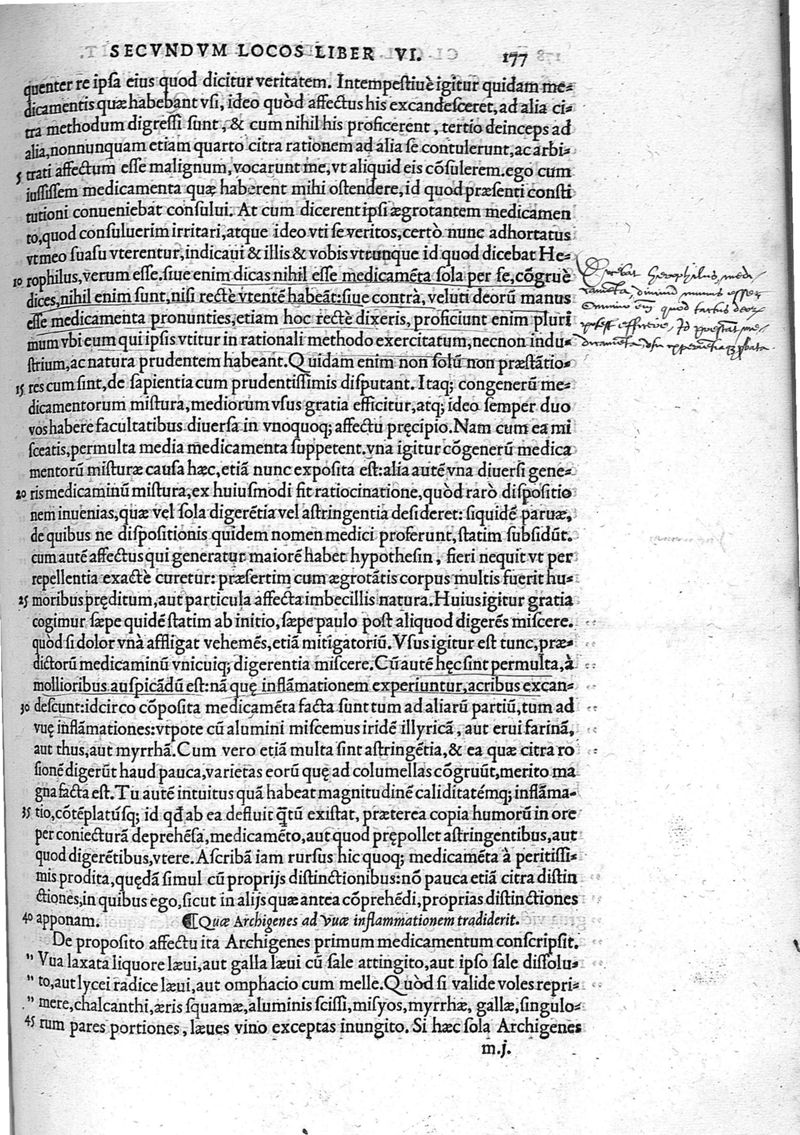 SECVNDVM LOCOS LIBER VI. 177
quenter re ipsa eius quod dicitur veritatem. Intempestiuè igitur quidam me-
dicamentis quæ habebant vsi, ideo quòd affectus his excandesceret, ad alia ci-
tra methodum digressi sunt, & cum nihil his proficerent, tertio deinceps ad
alia, nonnunquam etiam quarto citra rationem ad alia se contulerunt, ac arbi-
5 trati affectum esse malignum, vocarunt me, vt aliquid eis cõsulerem. ego cum
iussissem medicamenta quæ haberent mihi ostendere, id quod præsenti consti
tutioni conueniebat consului. At cum dicerent ipsi ægrotantem medicamen
to, quod consuluerim irritari, atque ideo vti se veritos, certò nunc adhortatus
vt meo suasu vterentur, indicaui & illis & vobis vtrunque id quod dicebat He-
10 rophilus, verum esse, siue enim dicas nihil esse medicamẽta sola per se, cõgruè
dices, nihil enim sunt, nisi rectè vtentẽ habeãt: siue contrà, veluti deorũ manus
esse medicamenta pronunties, etiam hoc rectè dixeris, proficiunt enim pluri
mum vbi eum qui ipsis vtitur in rationali methodo exercitatum, necnon indu-
strium, ac natura prudentem habeant. Quidam enim non solũ non præstãtio-
15 res cum sint, de sapientia cum prudentissimis disputant. Itaq; congenerũ me-
dicamentorum mistura, mediorum vsus gratia efficitur, atq; ideo semper duo
vos habere facultatibus diuersa in vnoquoq; affectu pręcipio. Nam cum ea mi
sceatis, permulta media medicamenta suppetent. vna igitur cõgenerũ medica
mentorũ misturæ causa hæc, etiã nunc exposita est: alia autẽ vna diuersi gene-
20 ris medicaminũ mistura, ex huiusmodi fit ratiocinatione, quòd rarò dispositio
nem inuenias, quæ vel sola digerẽtia vel astringentia desideret: siquidẽ paruæ,
de quibus ne dispositionis quidem nomen medici proferunt, statim subsidũt.
cum autẽ affectus qui generatur maiorẽ habet hypothesin, fieri nequit vt per
repellentia exactè curetur: præsertim cum ægrotãtis corpus multis fuerit hu-
25 moribus pręditum, aut particula affecta imbecillis natura. Huius igitur gratia
cogimur sæpe quidẽ statim ab initio, sæpe paulo post aliquod digerẽs miscere.
quòd si dolor vnà affligat vehemẽs, etiã mitigatoriũ. Vsus igitur est tunc, præ-
dictorũ medicaminũ vnicuiq; digerentia miscere. Cũ autẽ hęc sint permulta, à
mollioribus auspicãdũ est: nã quę inflãmationem experiuntur, acribus excan-
30 descunt: idcirco cõposita medicamẽta facta sunt tum ad aliarũ partiũ, tum ad
vuę inflãmationes: vtpote cũ alumini miscemus iridẽ illyricã, aut erui farinã,
aut thus, aut myrrhã. Cum vero etiã multa sint astringẽtia, & ea quæ citra ro
sionẽ digerũt haud pauca, varietas eorũ quę ad columellas cõgruũt, merito ma
gna facta est. Tu autẽ intuitus quã habeat magnitudinẽ caliditatẽmq; inflãma-
35 tio, cõtẽplatúsq; id qđ ab ea defluit q̃tũ existat, præterea copia humorũ in ore
per coniecturã deprehẽsa, medicamẽto, aut quod prępollet astringentibus, aut
quod digerẽtibus, vtere. Ascribã iam rursus hic quoq; medicamẽta à peritissi-
mis prodita, quędã simul cũ proprijs distinctionibus: nõ pauca etiã citra distin
ctiones, in quibus ego, sicut in alijs quæ antea cõprehẽdi, proprias distinctiones
40 apponam. ¶ Quæ Archigenes ad vuæ inflammationem tradiderit.
De proposito affectu ita Archigenes primum medicamentum conscripsit.
" Vua laxata liquore læui, aut galla læui cũ sale attingito, aut ipso sale dissolu-
" to, aut lycei radice læui, aut omphacio cum melle. Quòd si valide voles repri-
" mere, chalcanthi, æris squamæ, aluminis scissi, misyos, myrrhæ, gallæ, singulo-
45 rum pares portiones, læues vino exceptas inungito. Si hæc sola Archigenes
m.j.
Dicebat Herophilus, medi-
camẽta, divinũ manus esse